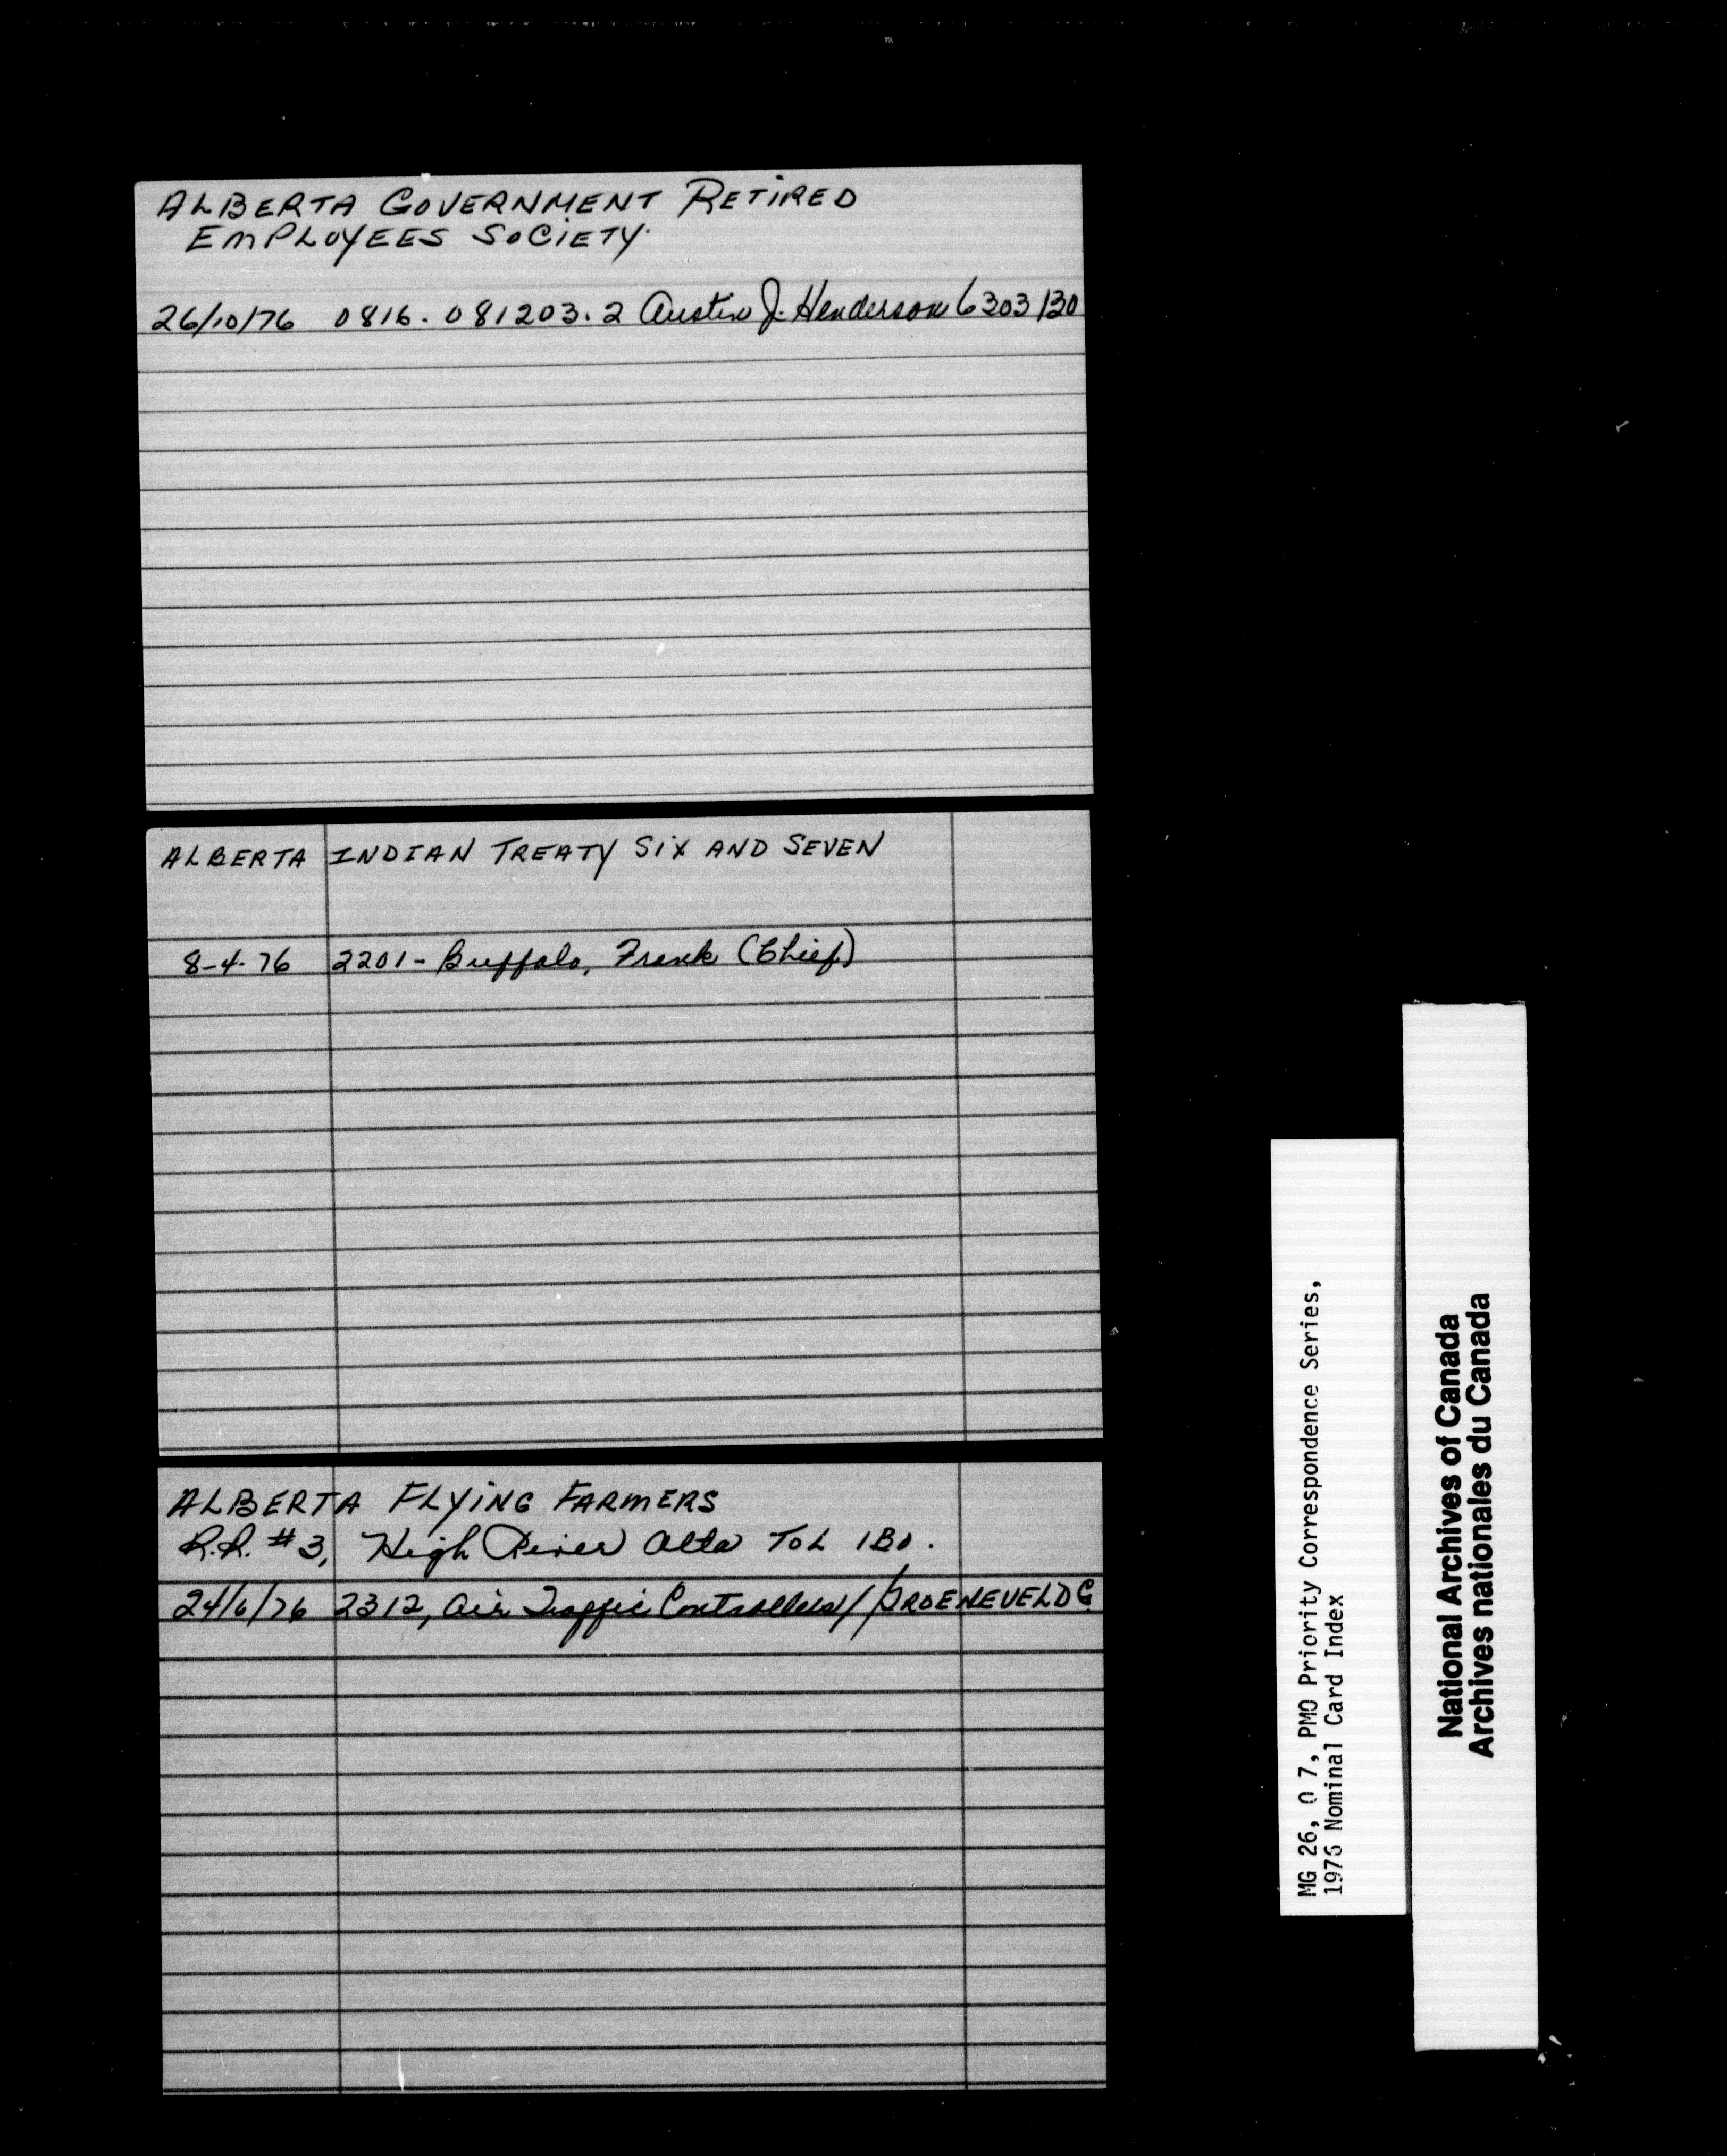 ALBERTA GOVERNMENT RETIRED
EMPLOYEES SOCIETY.
26/10/76 0816. 081203.2 Austin J. Henderson 6303 130
ALBERTA INDIAN TREATY SIX AND SEVEN
8-4-76 2201- Buffalo, Frank (Chief)
ALBERTA FLYING FARMERS
R.R. #3, High River Alta T0L 1B0.
24/6/76 2312, Air Traffic Controllers/ GROENEVELD C.
MG 26, O 7, PMO Priority Correspondence Series,
1976 Nominal Card Index
National Archives of Canada
Archives nationales du Canada